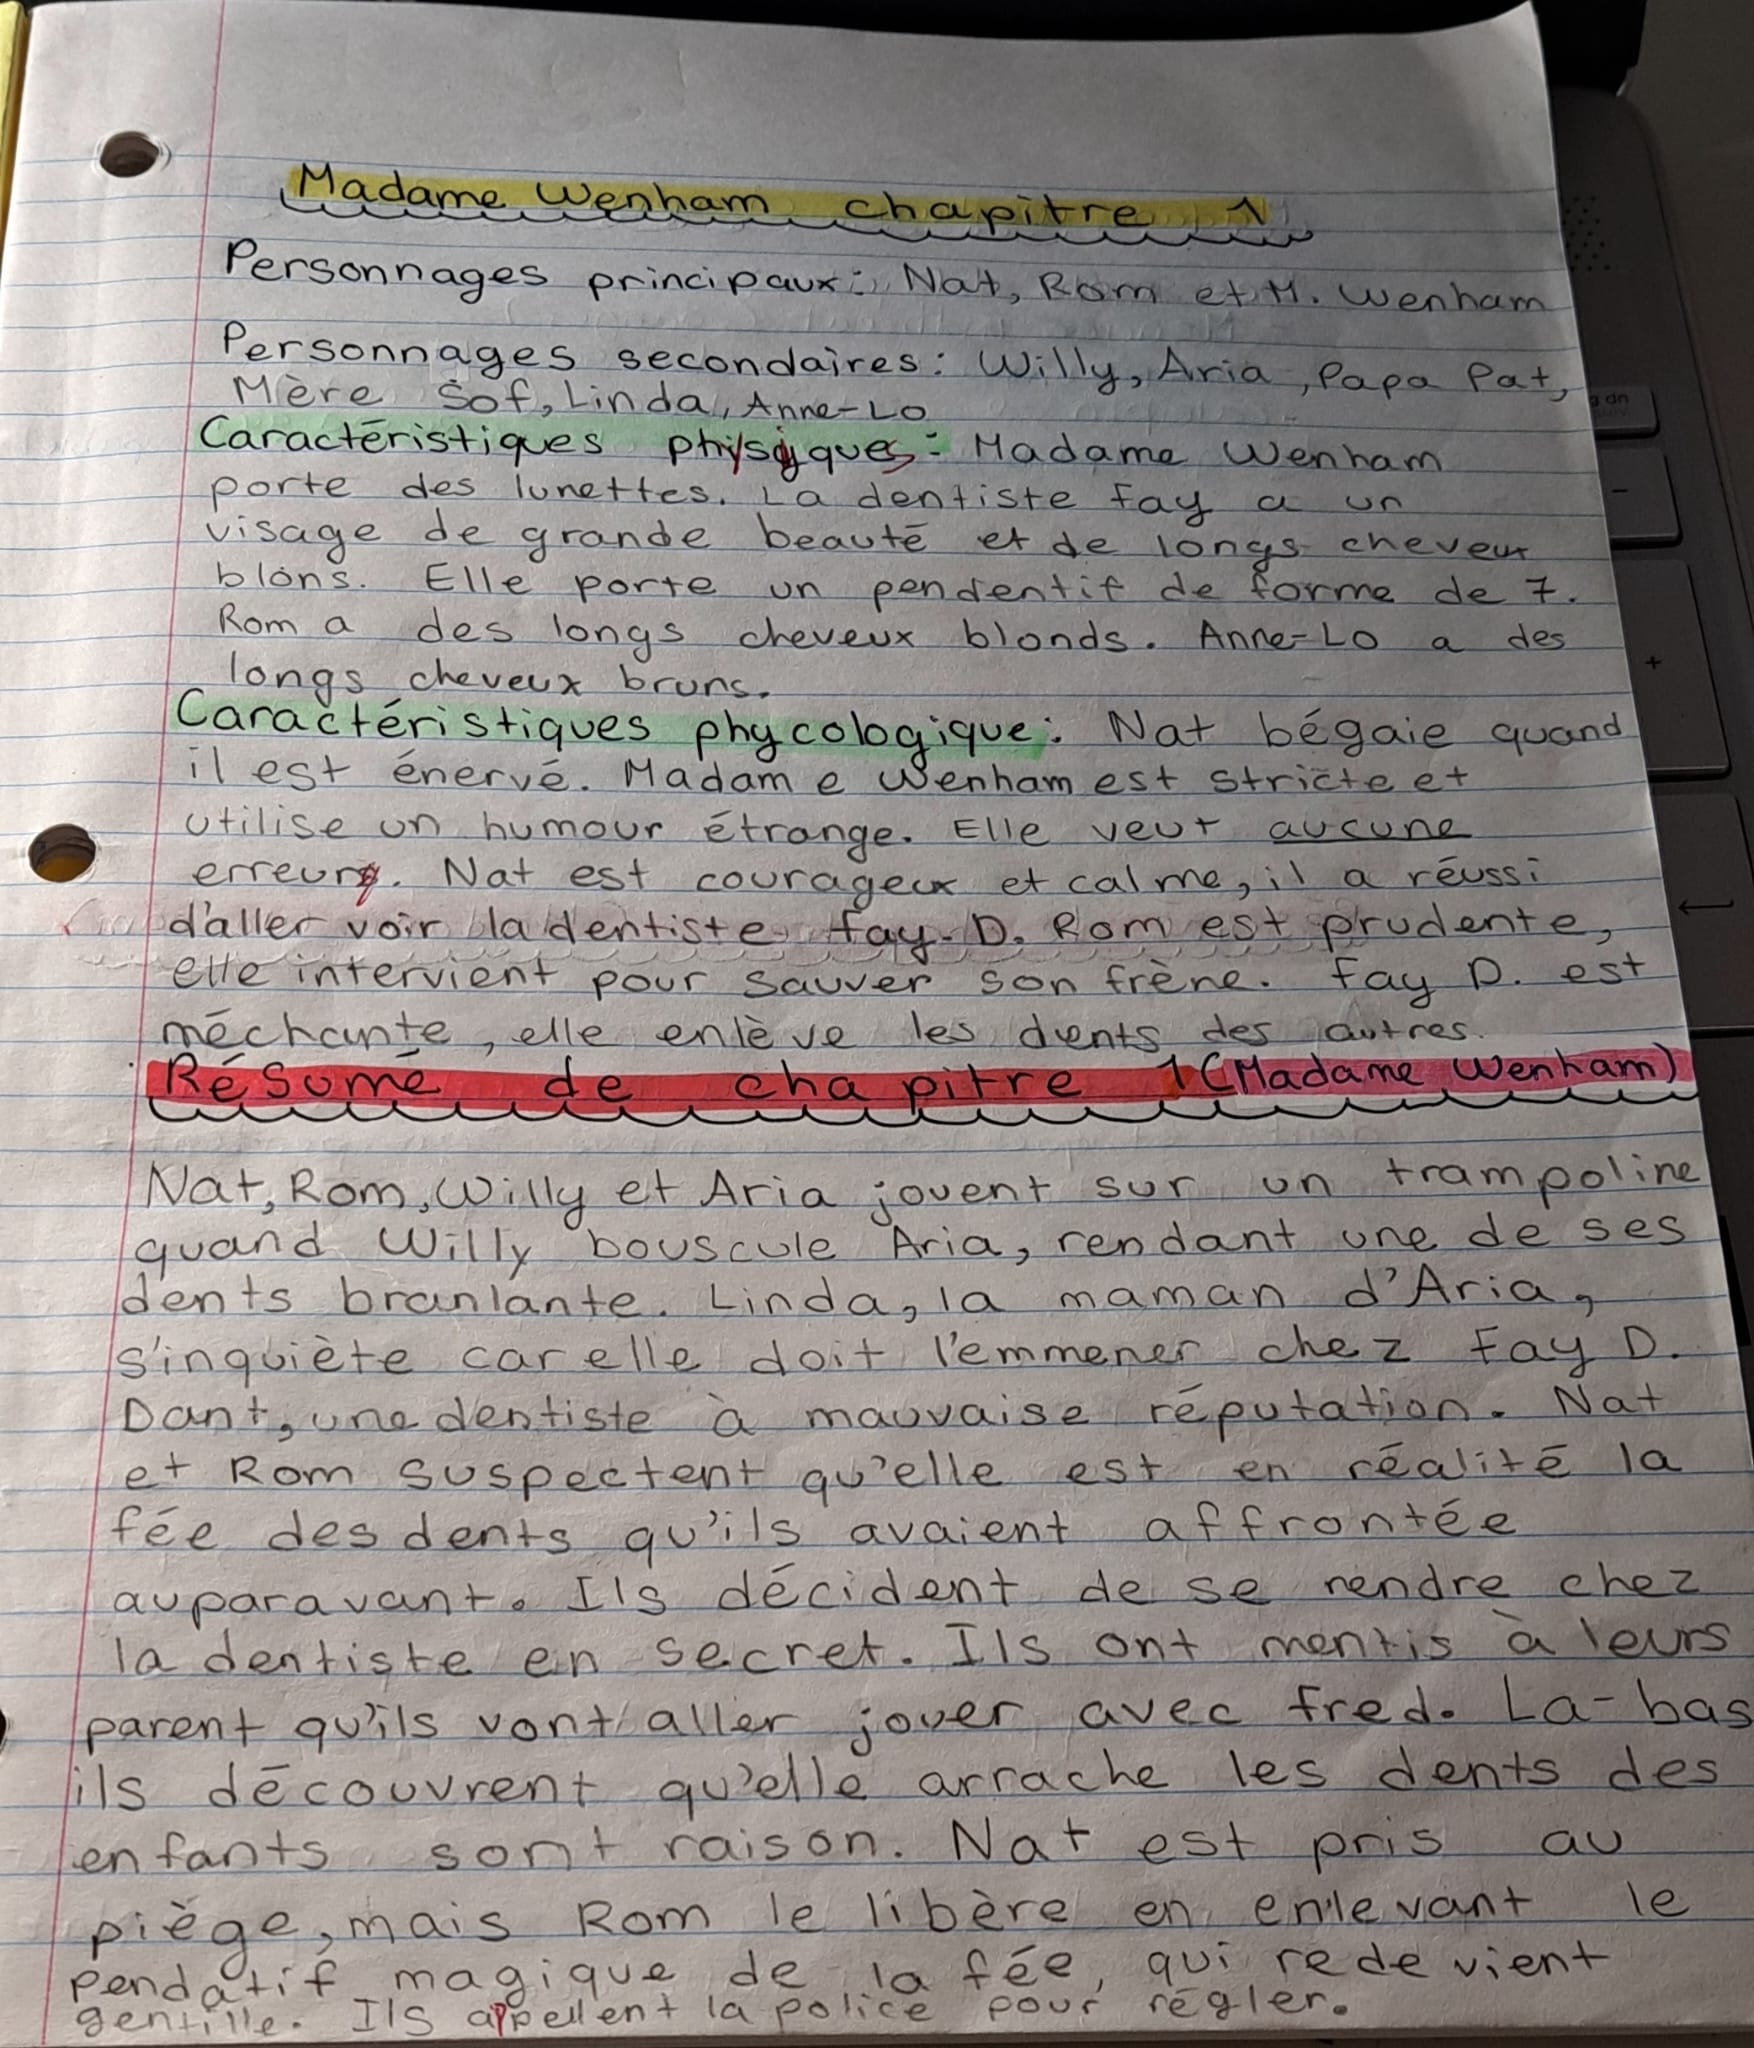 Madame Wenham chapitre 1
Personnages principaux: Nat, Rom et M. Wenham
Personnages secondaires: Willy, Aria, Papa Pat,
Mère Sof, Linda, Anne-Lo
Caractéristiques physiques: Madame Wenham
porte des lunettes. La dentiste Fay a un
visage de grande beauté et de longs cheveux
blons. Elle porte un pendentif de forme de 7.
Rom a des longs cheveux blonds. Anne-Lo a des
longs cheveux bruns.
Caractéristiques phycologique: Nat bégaie quand
il est énervé. Madame Wenham est stricte et
utilise un humour étrange. Elle veut aucune
erreur. Nat est courageux et calme, il a réussi
d'aller voir la dentiste Fay. D. Rom est prudente,
elle intervient pour sauver son frène. Fay D. est
méchante, elle enlève les dents des autres.
Résumé de chapitre 1 (Madame Wenham)
Nat, Rom, Willy et Aria jouent sur un trampoline
quand Willy bouscule Aria, rendant une de ses
dents branlante. Linda, la maman d'Aria,
s'inquiète car elle doit l'emmener chez Fay D.
Dant, une dentiste à mauvaise réputation. Nat
et Rom suspectent qu'elle est en réalité la
fée des dents qu'ils avaient affrontée
auparavant. Ils décident de se rendre chez
la dentiste en secret. Ils ont mentis à leurs
parent qu'ils vont aller jouer avec Fred. La-bas
ils découvrent qu'elle arrache les dents des
enfants sont raison. Nat est pris au
piège, mais Rom le libère en enlevant le
pendatif magique de la fée, qui redevient
gentille. Ils appellent la police pour régler.